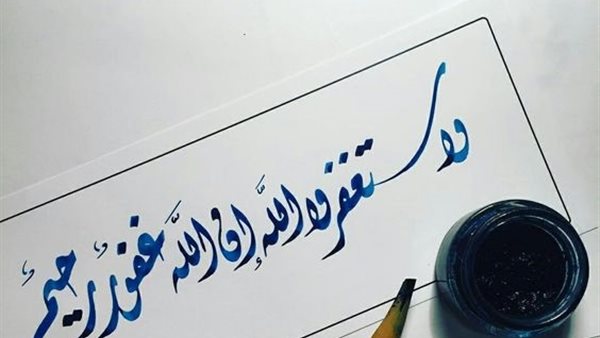 واستغفروا الله إن الله غفورٌ رحيمٌ